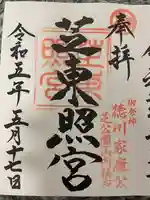 奉拝
御祭神
徳川家康公
芝東照宮
令和五年五月十七日